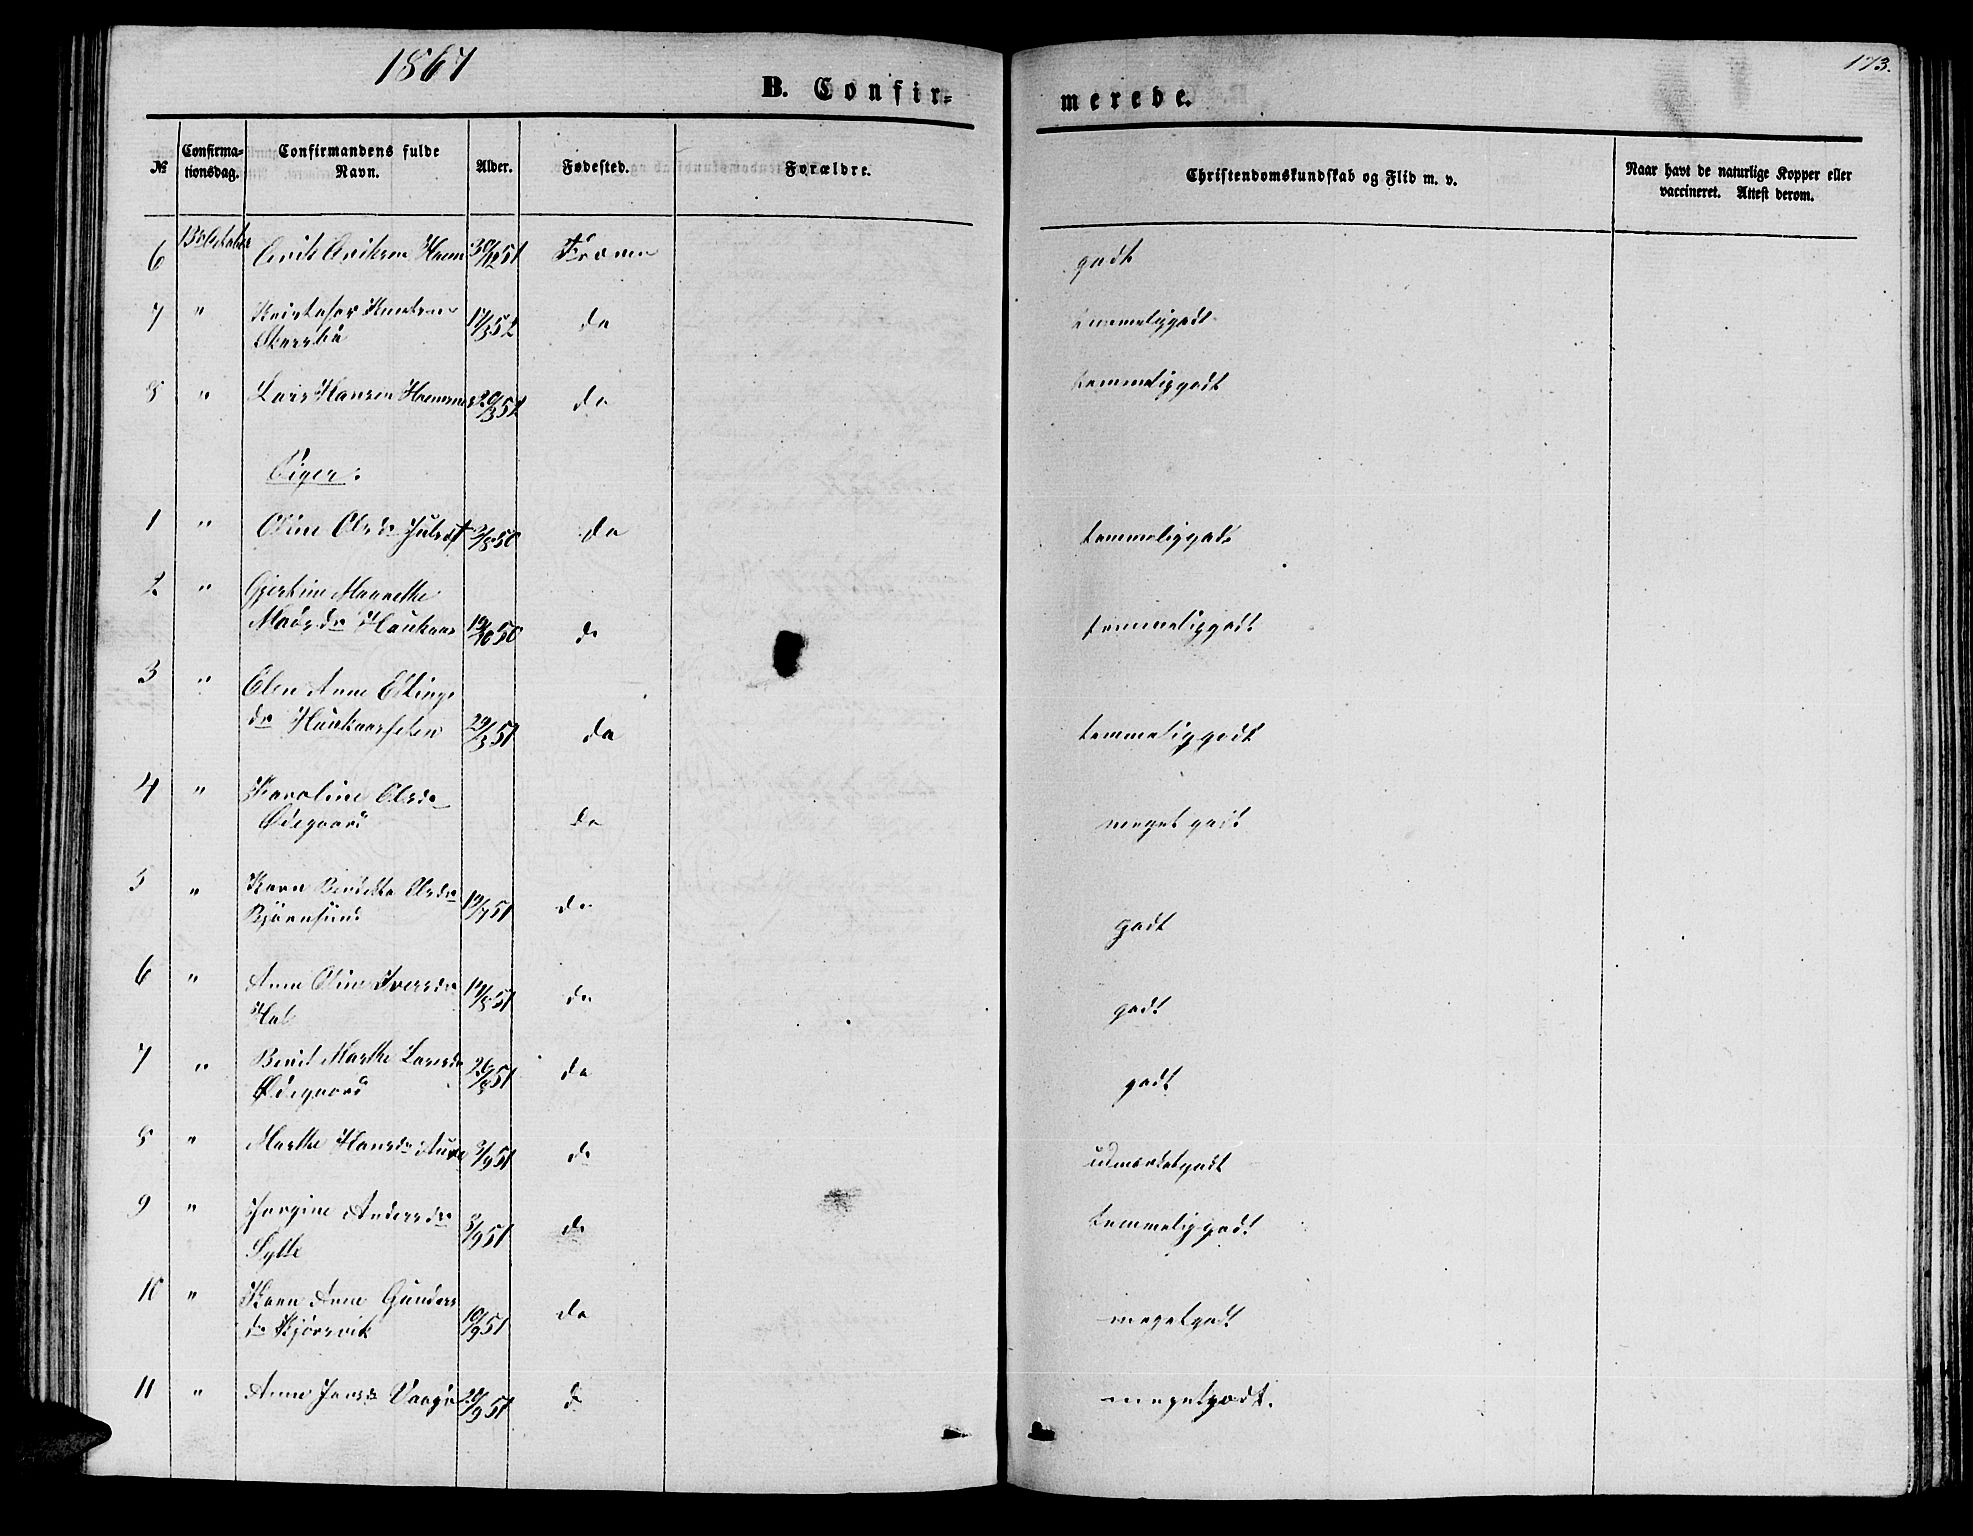 1867
173.
B. Confir-
merede.
№
Confirma-
tionsdag.
Confirmandens fulde
Navn.
Alder.
Fødested.
Forældre.
Christendomskundskab og Flid m. v.
Naar havt de naturlige Kopper eller
vaccineret. Attest derom.
6 13 October Erik Eriksen 30/12 51 Fræna godt
7 " Kristofer Knutsen
17/3 52 do temmeliggodt
8 " Lars Hansen 20/3 51 do temmeliggodt
Piger:
1 " Oline Olsdr 2/8 50 do temmeliggodt
2 " Gjertine Marnethe
Madsdr Haukaas 19/10 50 do temmeliggodt
3 " Elen Anne
dr 29/3 51 do temmeliggodt
4 " Karoline Olsdr
Ødegaard do meget godt
5 " Karn Olsdr
Bjørnsund 19/7 51 do godt
6 " Anne Oline Iversdr
Hol 19/8 51 do godt
7 " Berit Marthe Larsdr
Ødegaard 26/8 51 do godt
8 " Marthe Hansdr Aure 3/9 51 do udmærketgodt
9 " Jorgine Andersdr
Sylte 8/9 51 do temmeliggodt
10 " Karn Anne Gunders
dr Kjørsvik 10/9 51 do megetgodt
11 " Anne Jansdr Vaagø 28/9 51 do megetgodt.